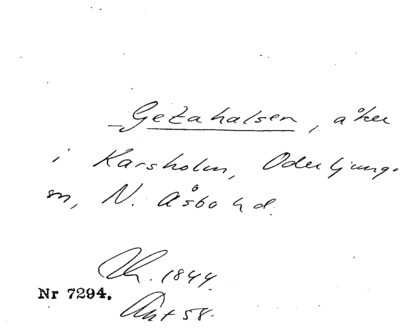 Getahalsen, åker
i Karsholm, Oderljunga
sn, N. Åsbo hd.
1844.
Nr 7294. Akt 58.